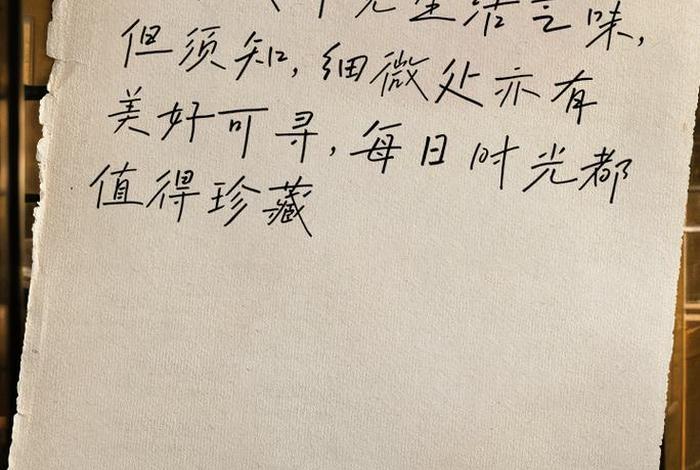 生活乏味,
但须知,细微处亦有
美好可寻,每日时光都
值得珍藏